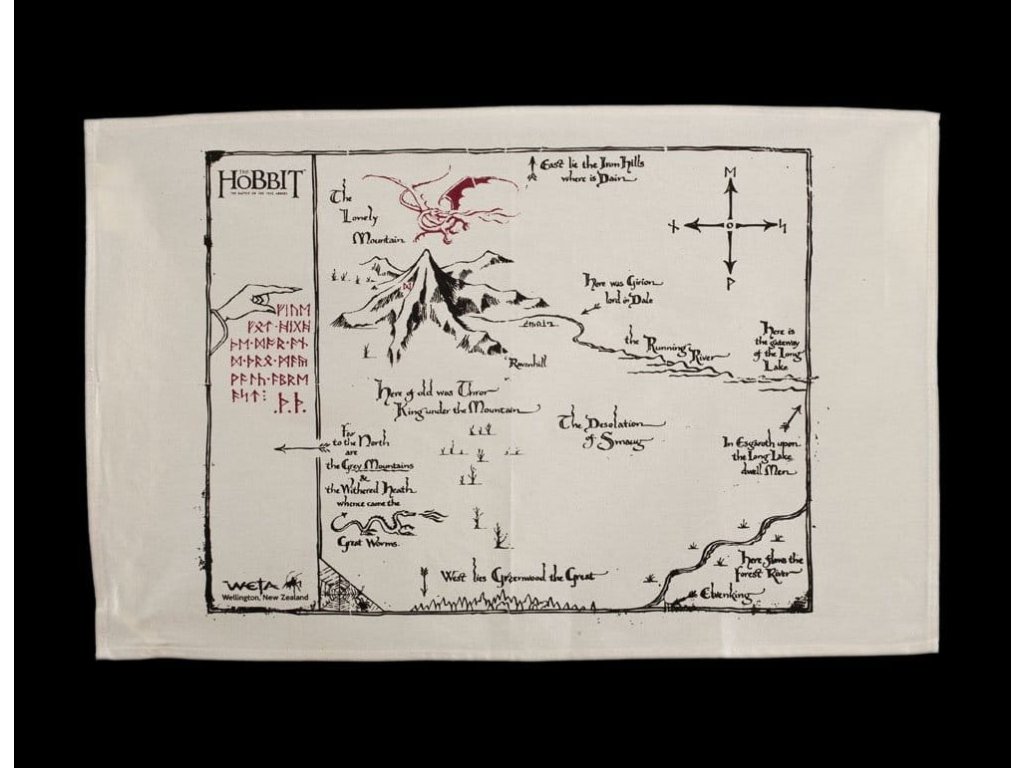 THE
HOBBIT
THE BATTLE OF THE FIVE ARMIES
East lie the Iron Hills
where is Dain
The
Lonely
Mountain
ᛖ
ᚾ
ᛋ
ᚹ
ᛞ
Here was Girion
lord in Dale
ᚠᛁᚢᛖ
ᚠᛟᛏ·ᚻᛁᚷᚻ
ᚦᛖ·ᛞᚩᚱ·ᚪᚾ
ᛞ·ᚦᚱᛟ·ᛗᚪᚣ
ᚹᚪᛚᚳ·ᚪᛒᚱᛖ
ᚪᛋᛏ᛬
.ᚦ.ᚦ.
the Running River
Here is
the gateway
of the Long
Lake
Ravenhill
Here of old was Thror
King under the Mountain
The Desolation
of Smaug
Far
to the North
are
the Grey Mountains
&
the Withered Heath
whence came the
Great Worms.
In Esgaroth upon
the Long Lake
dwell Men
Here flows the
Forest River
Elvenking
West lies Greenwood the Great
WETA
Wellington, New Zealand